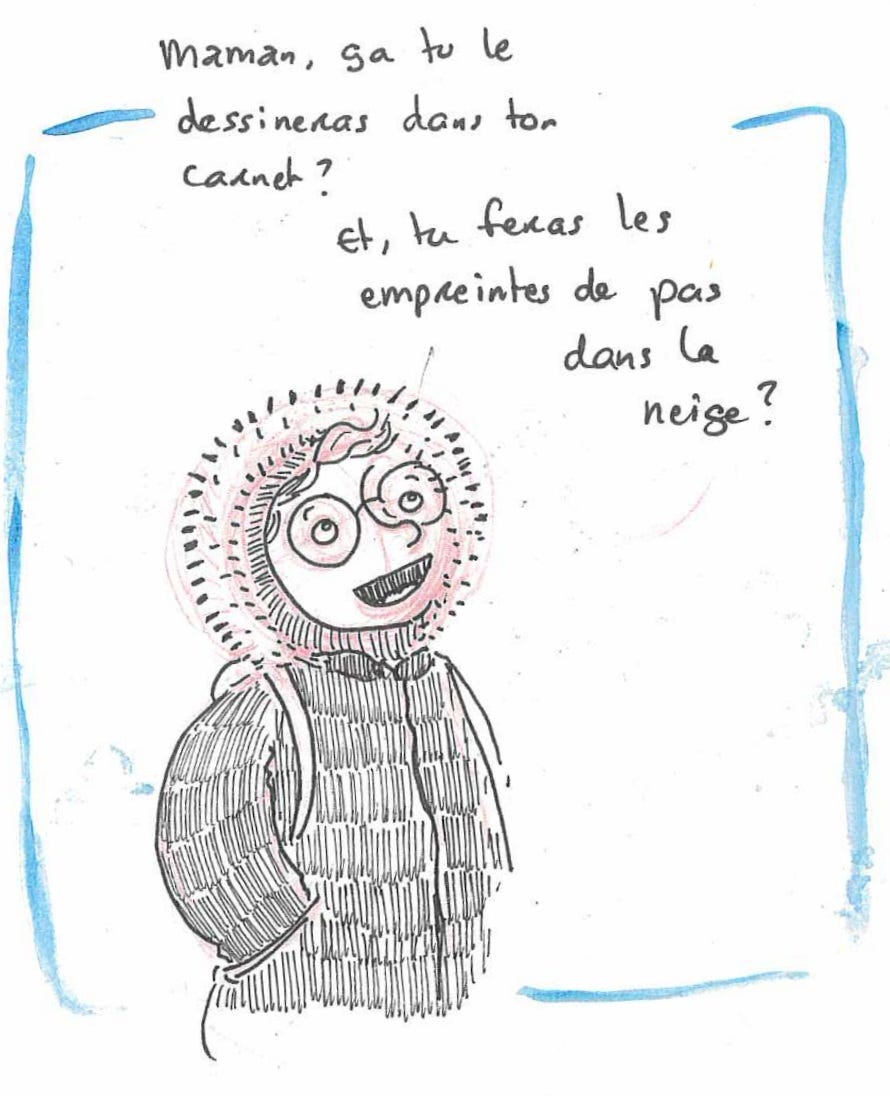 Maman, ça tu le
dessineras dans ton
carnet ?
Et, tu feras les
empreintes de pas
dans la
neige ?